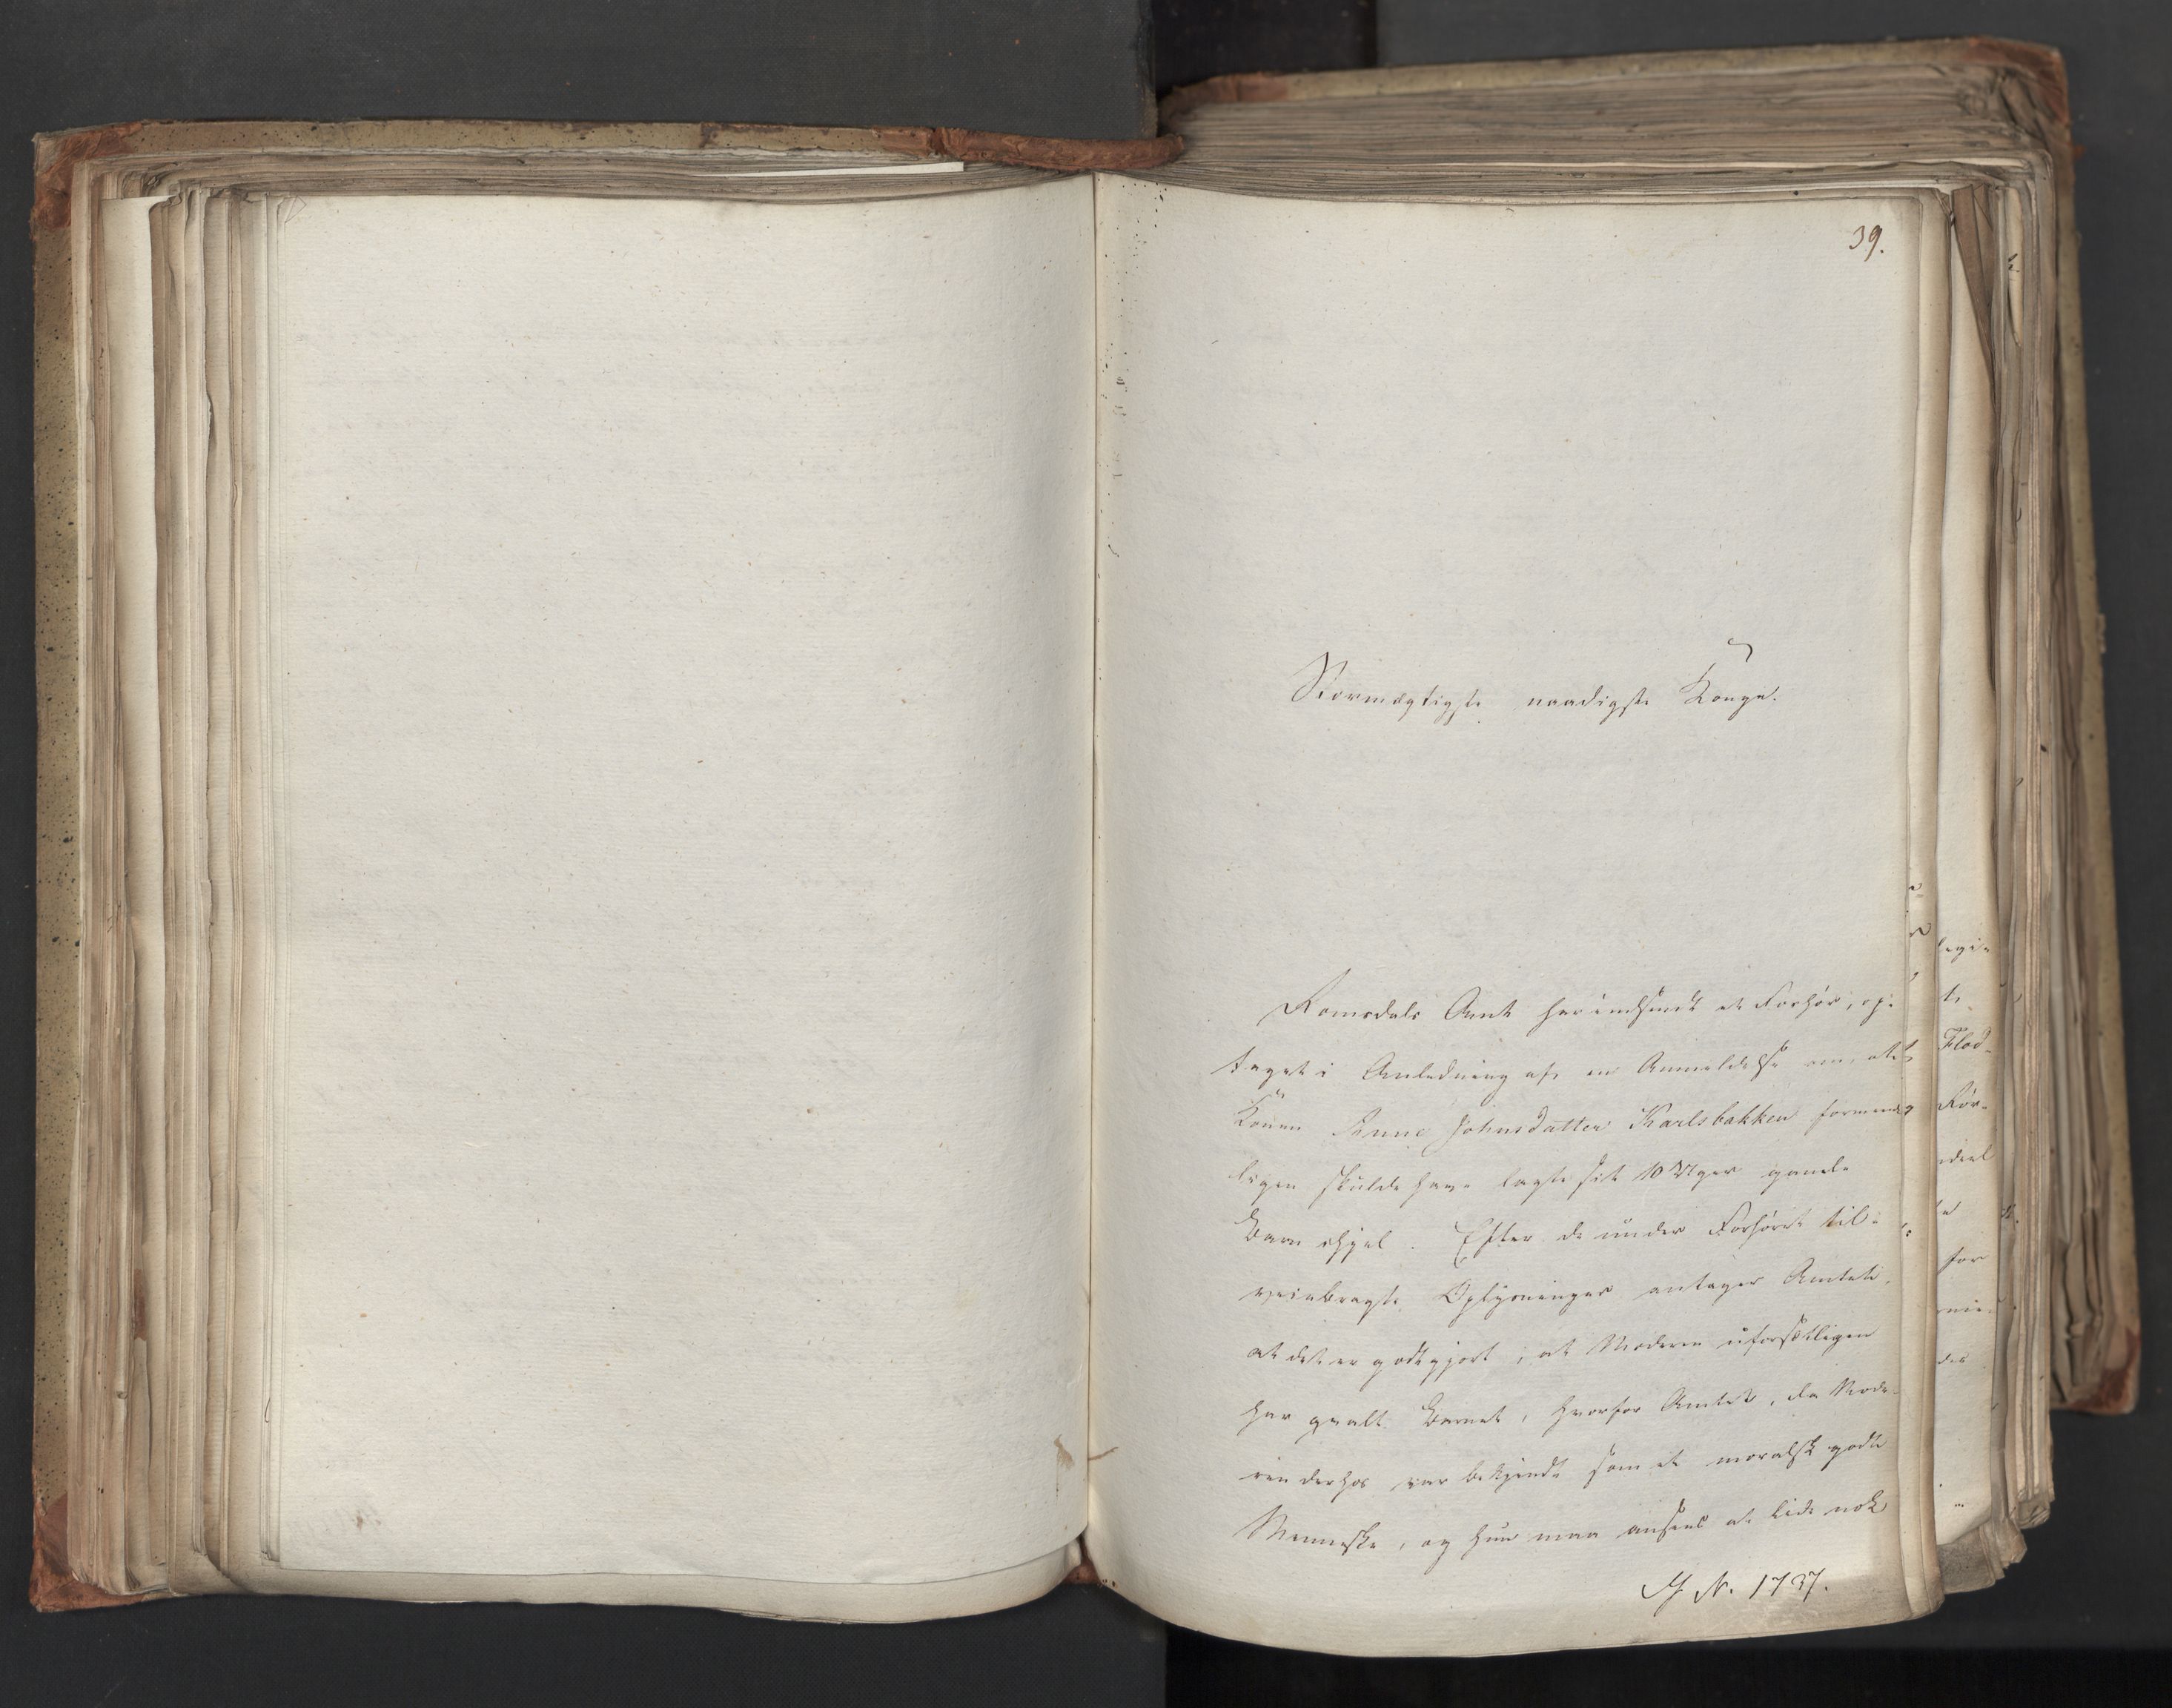 39.
Stormægtigste naadigste Konge.
Romsdals Amt har indsendt et Forhør, op-
taget i Anledning af en Anmeldelse om, at
Konen Anne Johnsdatter Karlsbakken formend
ligen skulde have lagt sit 10 Uger gamle
Barn ihjel. Efter de under Forhøret til-
veiebragte Oplysninger antager Amtet,
at det er godtgjort, at Moderen uforsætligen
har qvalt Barnet, hvorfor Amtet, da Mode-
ren derhos var bekjendt som et moralsk godt
Menneske, og hun maa ansees at lide nok
J N. 1737.
Flod-
for